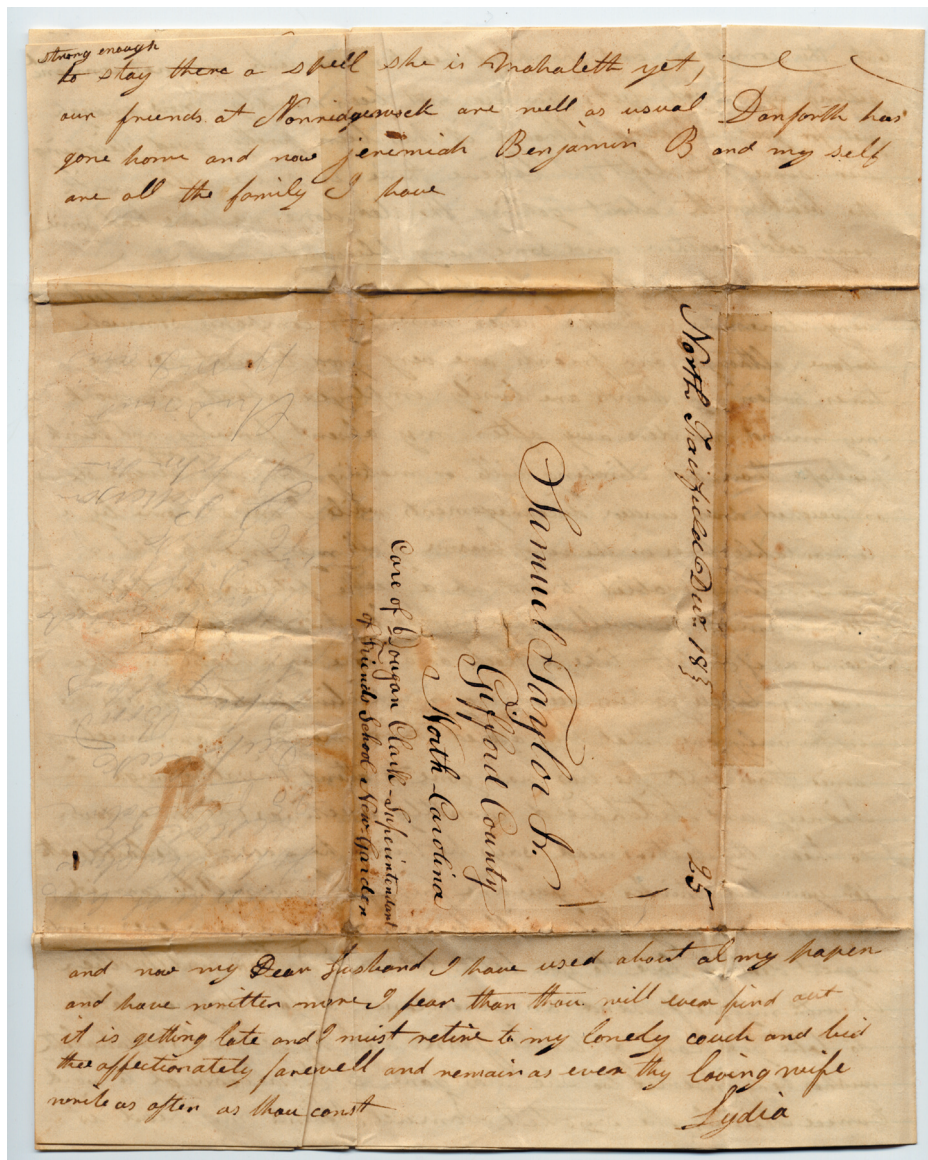 strong enough
to stay there a spell she is Mahaleth yet,
our friends at Norridgewock are well as usual Danforth has
gone home and now Jeremiah Benjamin B and my self
are all the family I have
North Fairfield Dec. 18
25
Samuel Taylor J.
Guilford County
North Carolina
Care of Dougan Clark - Superintendant
of Friends School New Garden
and now my Dear husband I have used about al my paper
and have written more I fear than thou will ever find out
it is getting late and I must retire to my lonely couch and bid
thee affectionately farewell and remain as ever thy loving wife
write as often as thou canst
Lydia